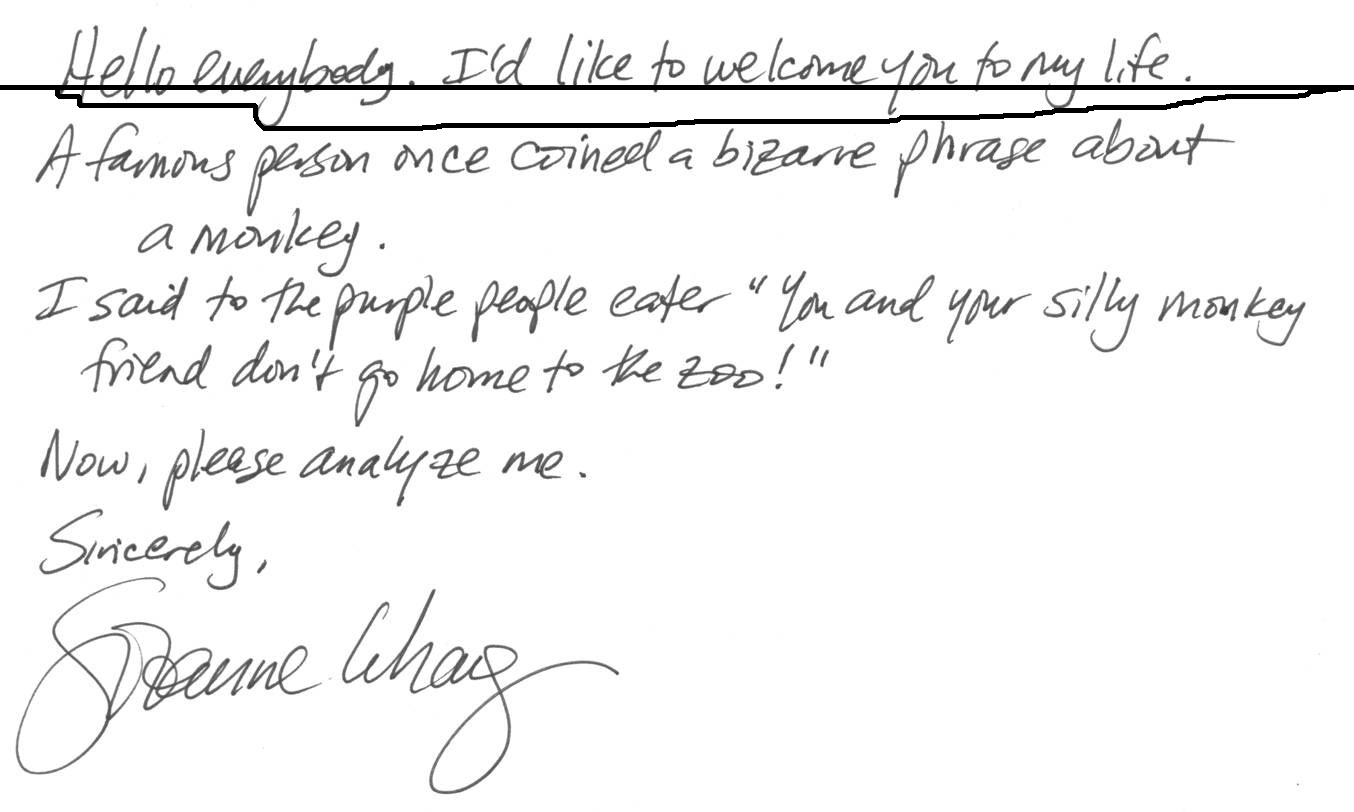 Hello everybody. I'd like to welcome you to my life.
A famous person once coined a bizarre phrase about
a monkey.
I said to the purple people eater "You and your silly monkey
friend don't go home to the zoo!"
Now, please analyze me.
Sincerely,